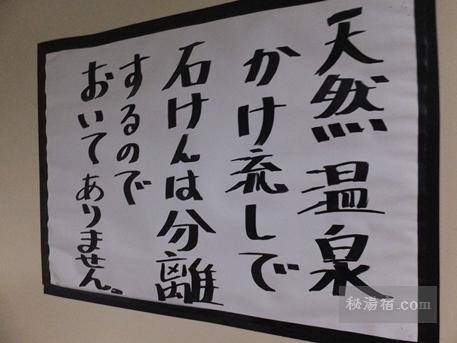 天然温泉
かけ流しで
石けんは分離
するので
おいてありません。
秘湯宿.com